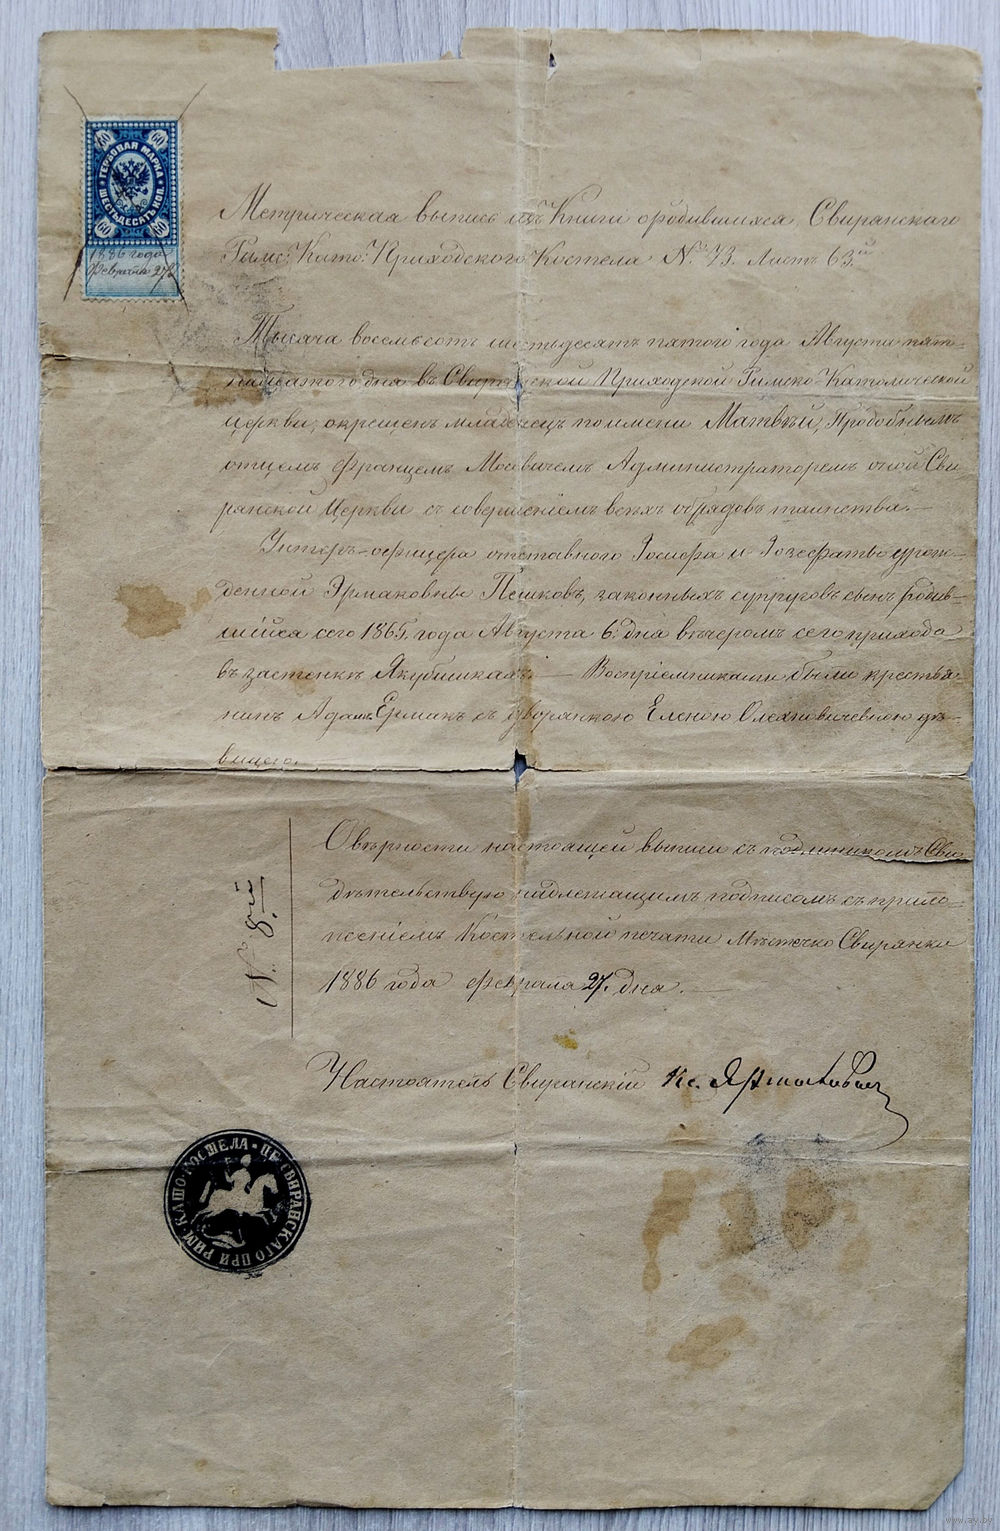 60 60
ГЕРБОВАЯ МАРКА
ШЕСТЬДЕСЯТЪ КОП.
60 60
1886 года
Февраля 27
Метрическая выпись изъ Книги о родившихся, Свиранскаго
Римс: Като: Приходского Костела №73. Листъ 63й
Тысяча восемьсотъ шестьдесятъ пятого года Августа пят-
надцатого дня въ Свиранской Приходской Римско-Католической
церкви, окрещенъ младенецъ по имени Матвѣй, Преподобнымъ
отцемъ Францемъ Администраторомъ оной Сви
ранской Церкви съ совершеніемъ всехъ обрядовъ таинства.—
Унтеръ-офицера отставного Іосифа и Іозефаты урож-
денной Эрмаковны Пешковъ, законныхъ супруговъ сынъ, родив-
шійся сего 1865. года Августа 6. дня вечеромъ сего прихода
въ застенкѣ Якубишкахъ.— Воспріемниками были крестья-
нинъ Адамъ Ермакъ съ дворянкою Еленою Олехновичевною дѣ-
вицею.
О вѣрности настоящей выписи съ подлинникомъ Сви-
дѣтельствую надлежащимъ подписомъ съ прило-
женіемъ Костельной печати Мѣстечко Свиранки
1886 года февраля 27. дня.—
№ 8й
Настоятель Свиранскій Кс.
ПЕ. СВИРАНСКАГО ПРИ РИМ. КАТО. КОСТЕЛА
www.ay.by